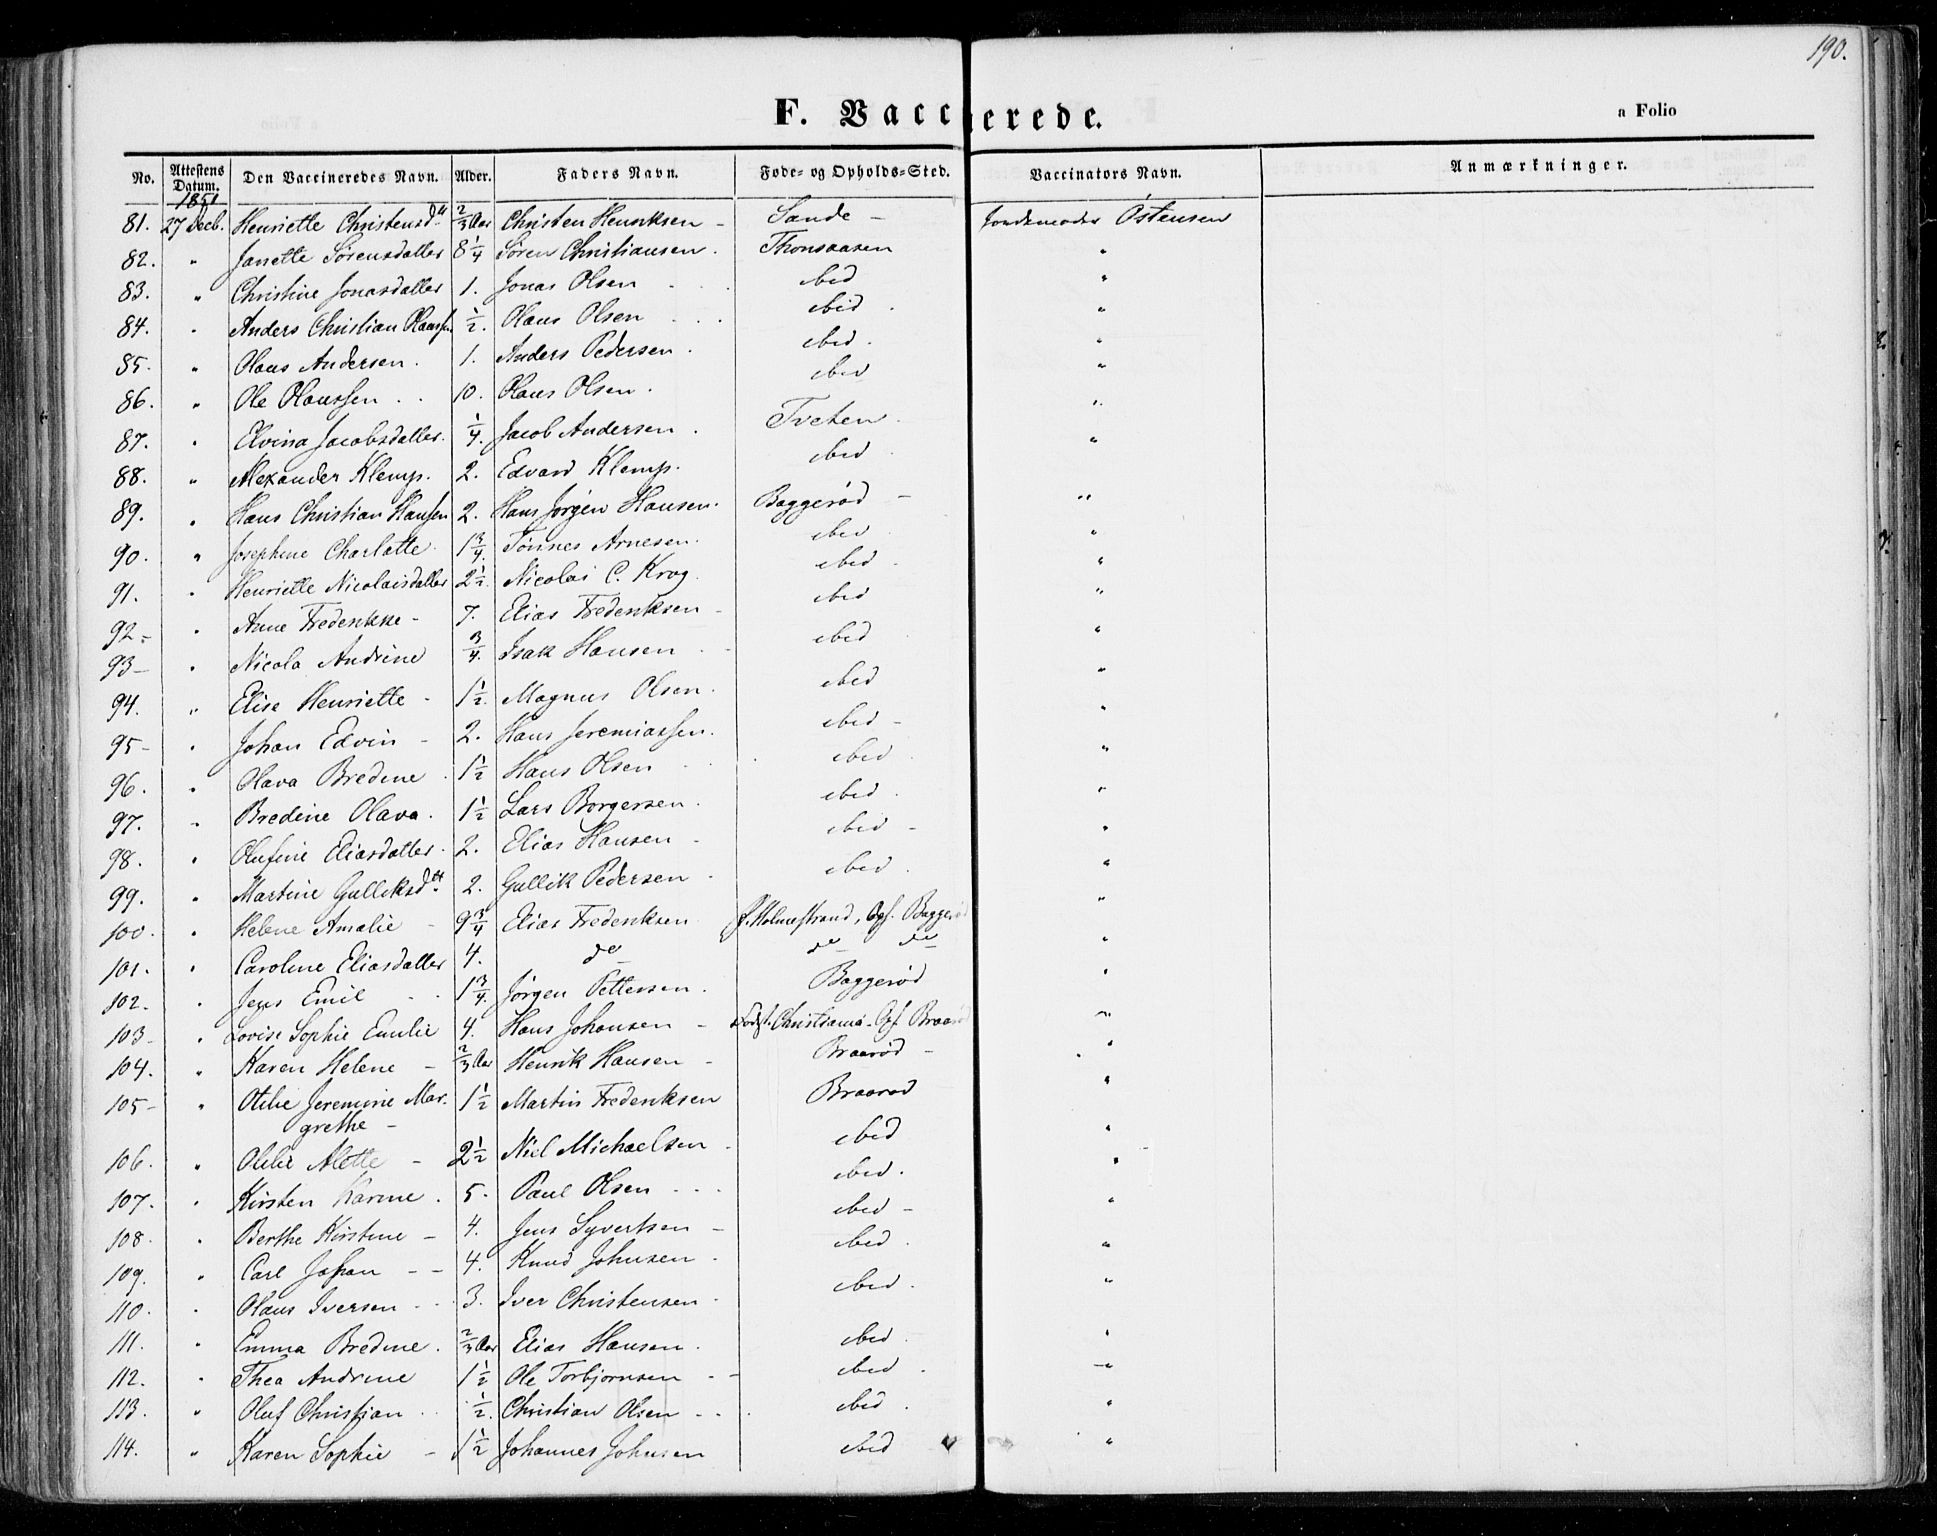 190.
F. Vaccinerede. a Folio
No. Attestens Datum. Den Vaccineredes Navn. Alder. Faders Navn. Føde- og Opholds-Sted. Vaccinators Navn. Anmærkninger.
1851
81. 27 Decb. Henriette Christensdtt 2/3 Aar Christen Henriksen - Sande - Jordemoder Østensen
82. " Janette Sørensdatter 8 1/4 Søren Christiansen. Thonsaasen "
83. " Christine Jonasdatter 1. Jonas Olsen ibid "
84. " Anders Christian Olaussen 1/2. Olaus Olsen ibid. "
85. " Olaus Andersen. 1. Anders Pedersen. ibid. "
86. " Ole Olaussen 10. Olaus Olsen. ibid "
87. " Elvina Jacobsdatter. 1/4. Jacob Andersen. Tveten. "
88. " Alexander Klemp. 2. Edvard Klemp. ibid "
89. " Hans Christian Hansen 2. Hans Jørgen Hansen. Baggerød - "
90. " Josephine Charlotte 1 3/4. Tønnes Arnesen. ibid "
91. " Henriette Nicolaisdatter 2 1/2. Nicolai C. Krog. ibid. "
92- " Anne Fredrikke - 7. Elias Frederiksen - ibid "
93- " Nicola Andrine 3/4. Isak Hansen ibid "
94. " Elise Henriette - 1 1/2. Magnus Olsen. ibid "
95- " Johan Edvin - 2. Hans Jeremiassen. ibid - "
96. " Olava Bredine 1 1/2 Hans Olsen ibid "
97. " Bredine Olava. 1 1/2 Lars Borgersen. ibid. "
98. " Olufine Eliasdatter. 2. Elias Hansen ibid - "
99. " Martine Gulliksdtt 2. Gullik Pedersen ibid. "
100. " Helene Amalie 9 3/4 Elias Frederiksen f. Holmestrand, Ops. Baggerød "
101. " Caroline Eliasdatter 4. do do do "
102. " Jens Emil 1 3/4. Jørgen Pettersen. Baggerød "
103- " Lovise Sophie Emilie 4. Hans Johansen - Fødst. Christiania - Ops. Braarød "
104. " Karen Helene - 2/3 Aar Henrik Hansen - Braarød - "
105- " Otilie Jeremine Mar- 1 1/2 Martin Frederiksen Braarød "
grethe -
106. " Olilie Alette - 2 1/2 Niel Michaelsen ibid "
107. " Kirsten Karine. 5. Paul Olsen ibid. "
108. " Berthe Kirstine - 4. Jens Syvertsen - ibid - "
109. " Carl Johan - - 4. Knud Johnsen ibid. "
110. " Olaus Iversen 3. Iver Christensen. ibid. "
111. " Emma Bredine. 2/3 Aar Elias Hansen. ibid. "
112. " Thea Andrine 1 1/2 Ole Torbjørnsen - ibid. "
113. " Oluf Christian 1/2. Christian Olsen ibid. "
114. " Karen Sophie - 1 1/2 Johannes Johnsen ibid "